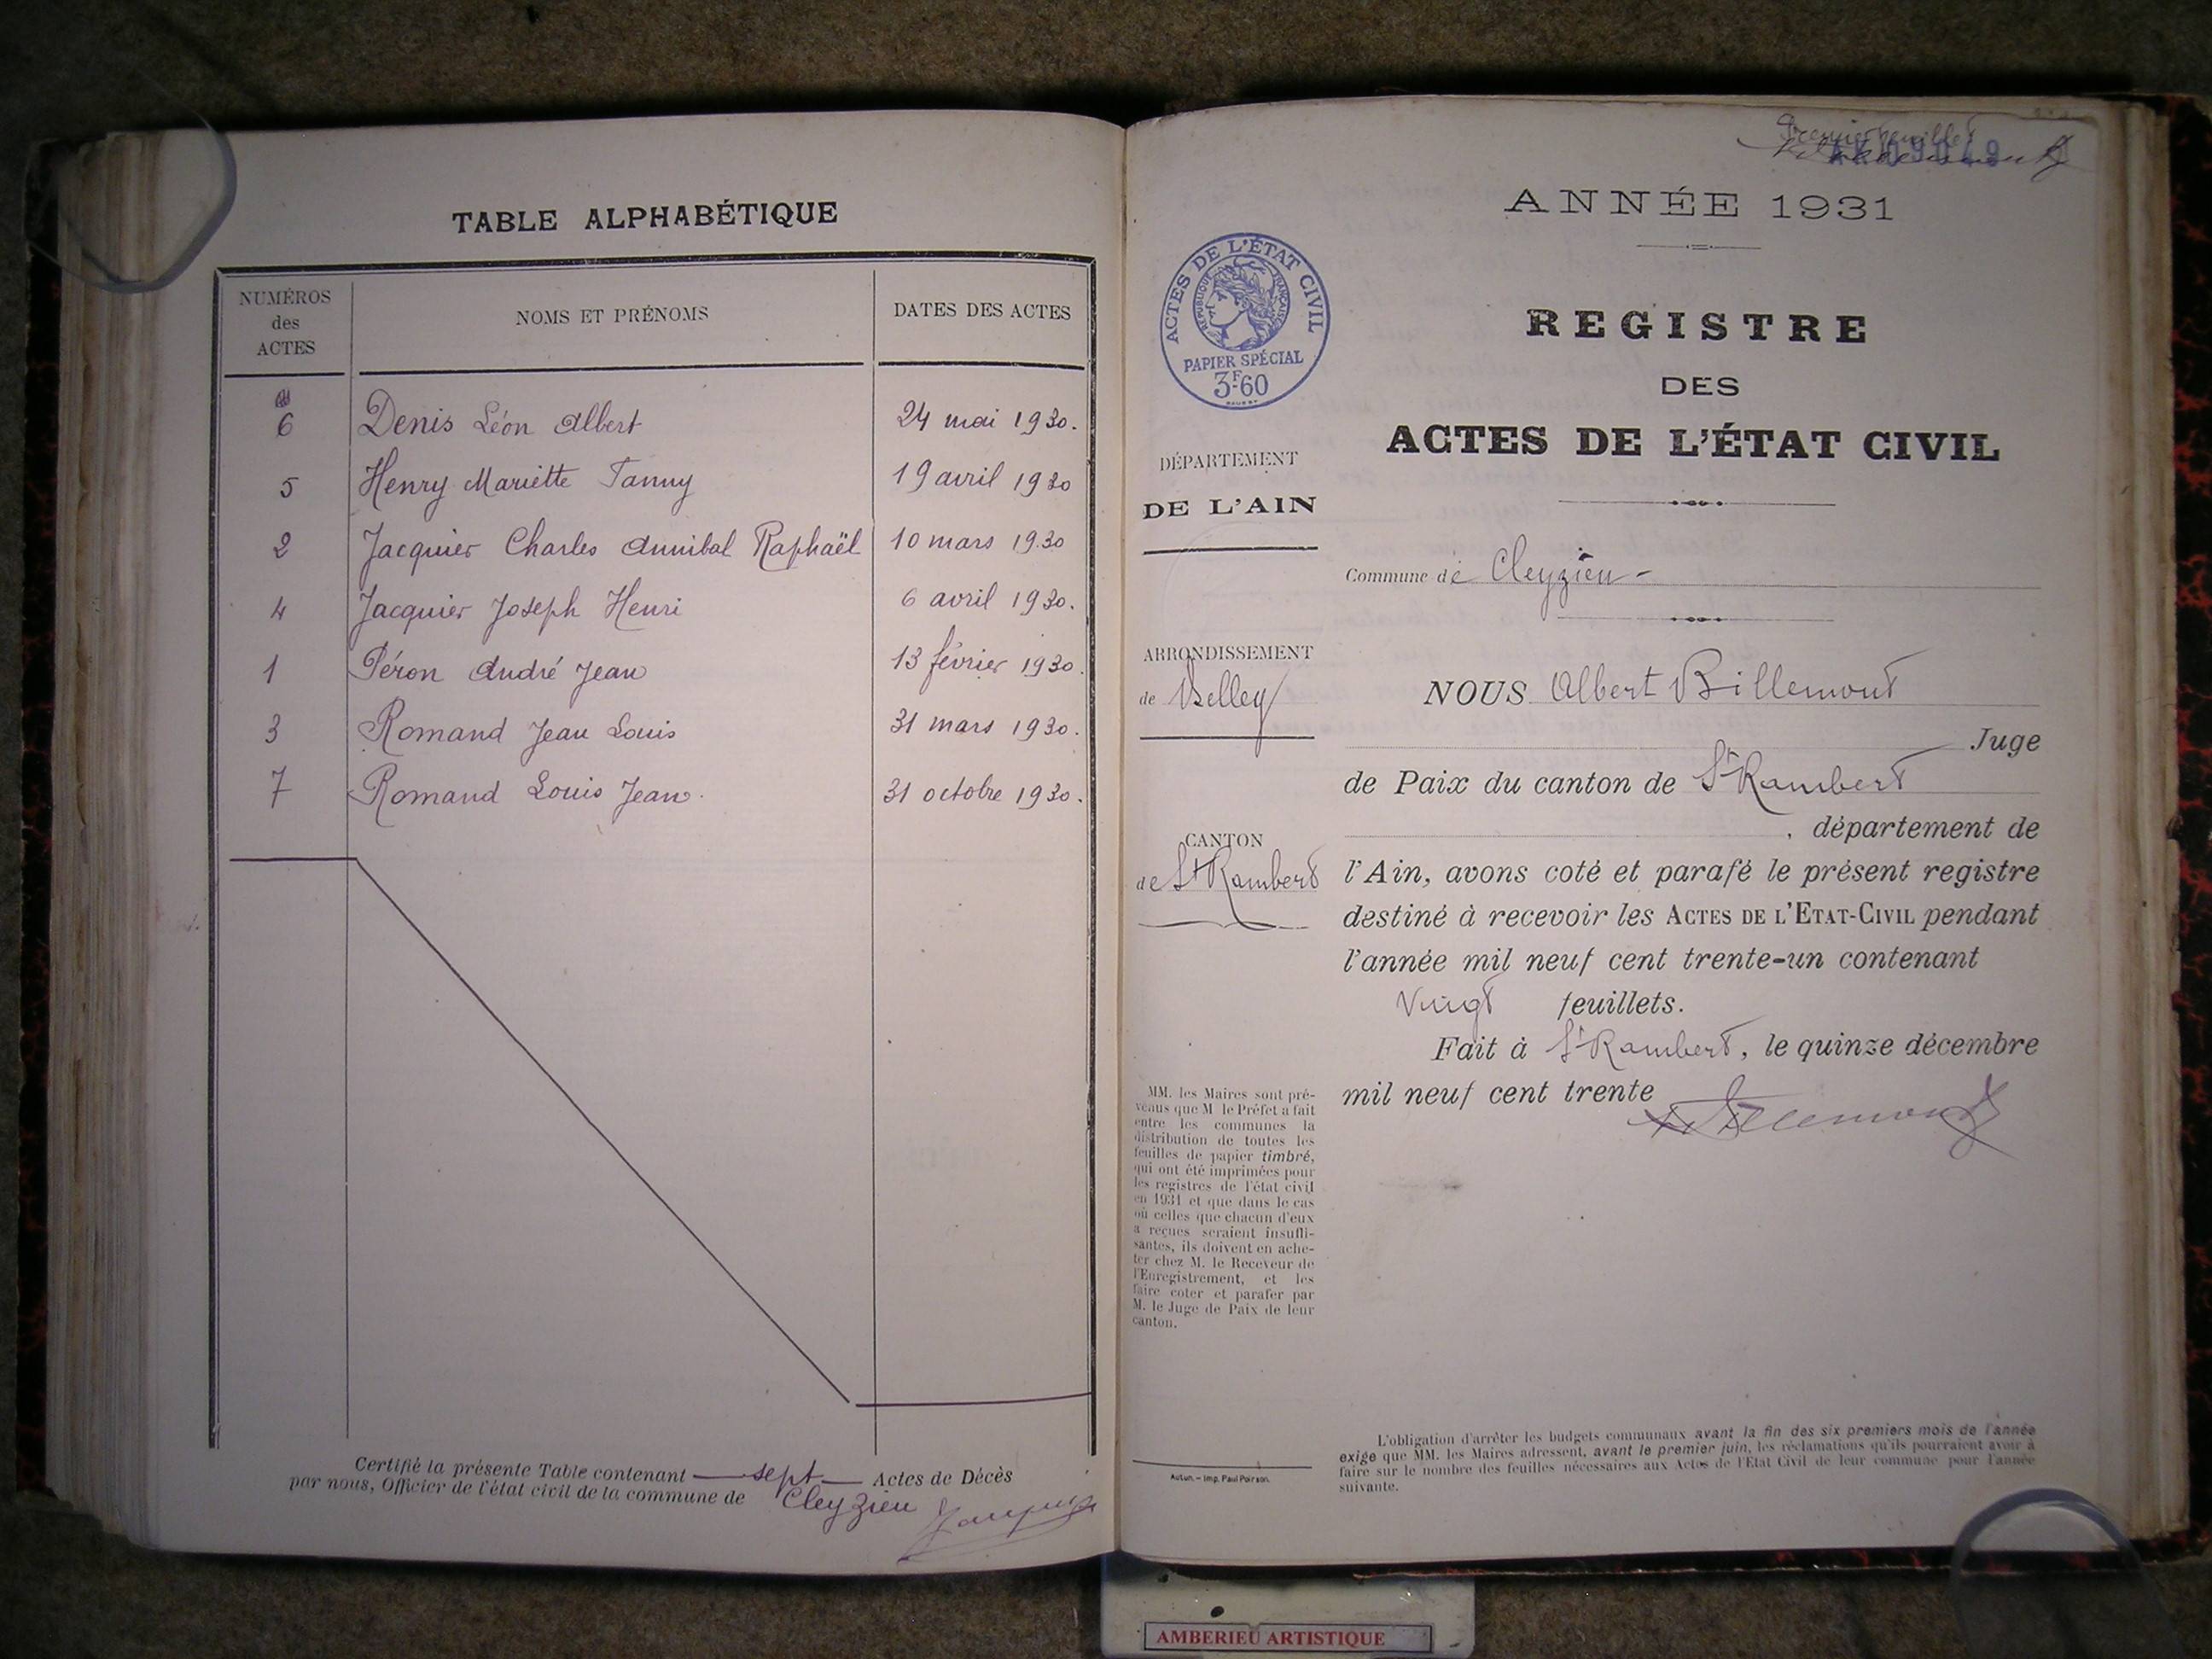 TABLE ALPHABÉTIQUE
NUMÉROS
des
ACTES
NOMS ET PRÉNOMS
DATES DES ACTES
6 Denis Léon Albert 24 mai 1930.
5 Henry Mariette Fanny 19 avril 1930
2 Jacquier Charles Annibal Raphaël 10 mars 1930
4 Jacquier Joseph Henri 6 avril 1930.
1 Péron André Jean 13 février 1930.
3 Romand Jean Louis 31 mars 1930.
7 Romand Louis Jean. 31 octobre 1930.
Certifié la présente Table contenant sept Actes de Décès
par nous, Officier de l'état civil de la commune de Cleyzieu
Premier feuillet
ANNÉE 1931
ACTES DE L'ÉTAT CIVIL
RÉPUBLIQUE FRANÇAISE
PAPIER SPÉCIAL
3F60
REGISTRE
DES
ACTES DE L'ÉTAT CIVIL
DÉPARTEMENT
DE L'AIN
ARRONDISSEMENT
de Belley
CANTON
de St Rambert
MM. les Maires sont pré-
venus que M le Préfet a fait
entre les communes la
distribution de toutes les
feuilles de papier timbré,
qui ont été imprimées pour
les registres de l'état civil
en 1931 et que dans le cas
où celles que chacun d'eux
a reçues seraient insuffi-
santes, ils doivent en ache-
ter chez M. le Receveur de
l'Enregistrement, et les
faire coter et parafer par
M. le Juge de Paix de leur
canton.
Autun. – Imp. Paul Poirson.
Commune de Cleyzieu -
NOUS Albert Billemont
Juge
de Paix du canton de St Rambert
, département de
l'Ain, avons coté et parafé le présent registre
destiné à recevoir les ACTES DE L'ETAT-CIVIL pendant
l'année mil neuf cent trente-un contenant
Vingt feuillets.
Fait à St Rambert, le quinze décembre
mil neuf cent trente
L'obligation d'arrêter les budgets communaux avant la fin des six premiers mois de l'année
exige que MM. les Maires adressent, avant le premier juin, les réclamations qu'ils pourraient avoir à
faire sur le nombre des feuilles nécessaires aux Actes de l'Etat Civil de leur commune pour l'année
suivante.
AMBERIEU ARTISTIQUE